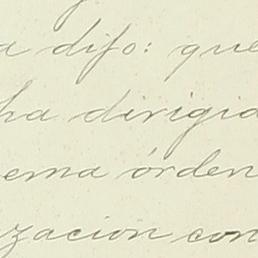 a difo: que
ha dirigid
ema órden
zacion con